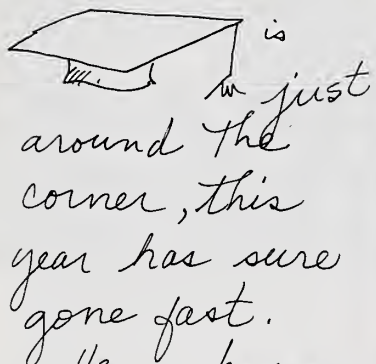 is
just
around the
corner, this
year has sure
gone fast.